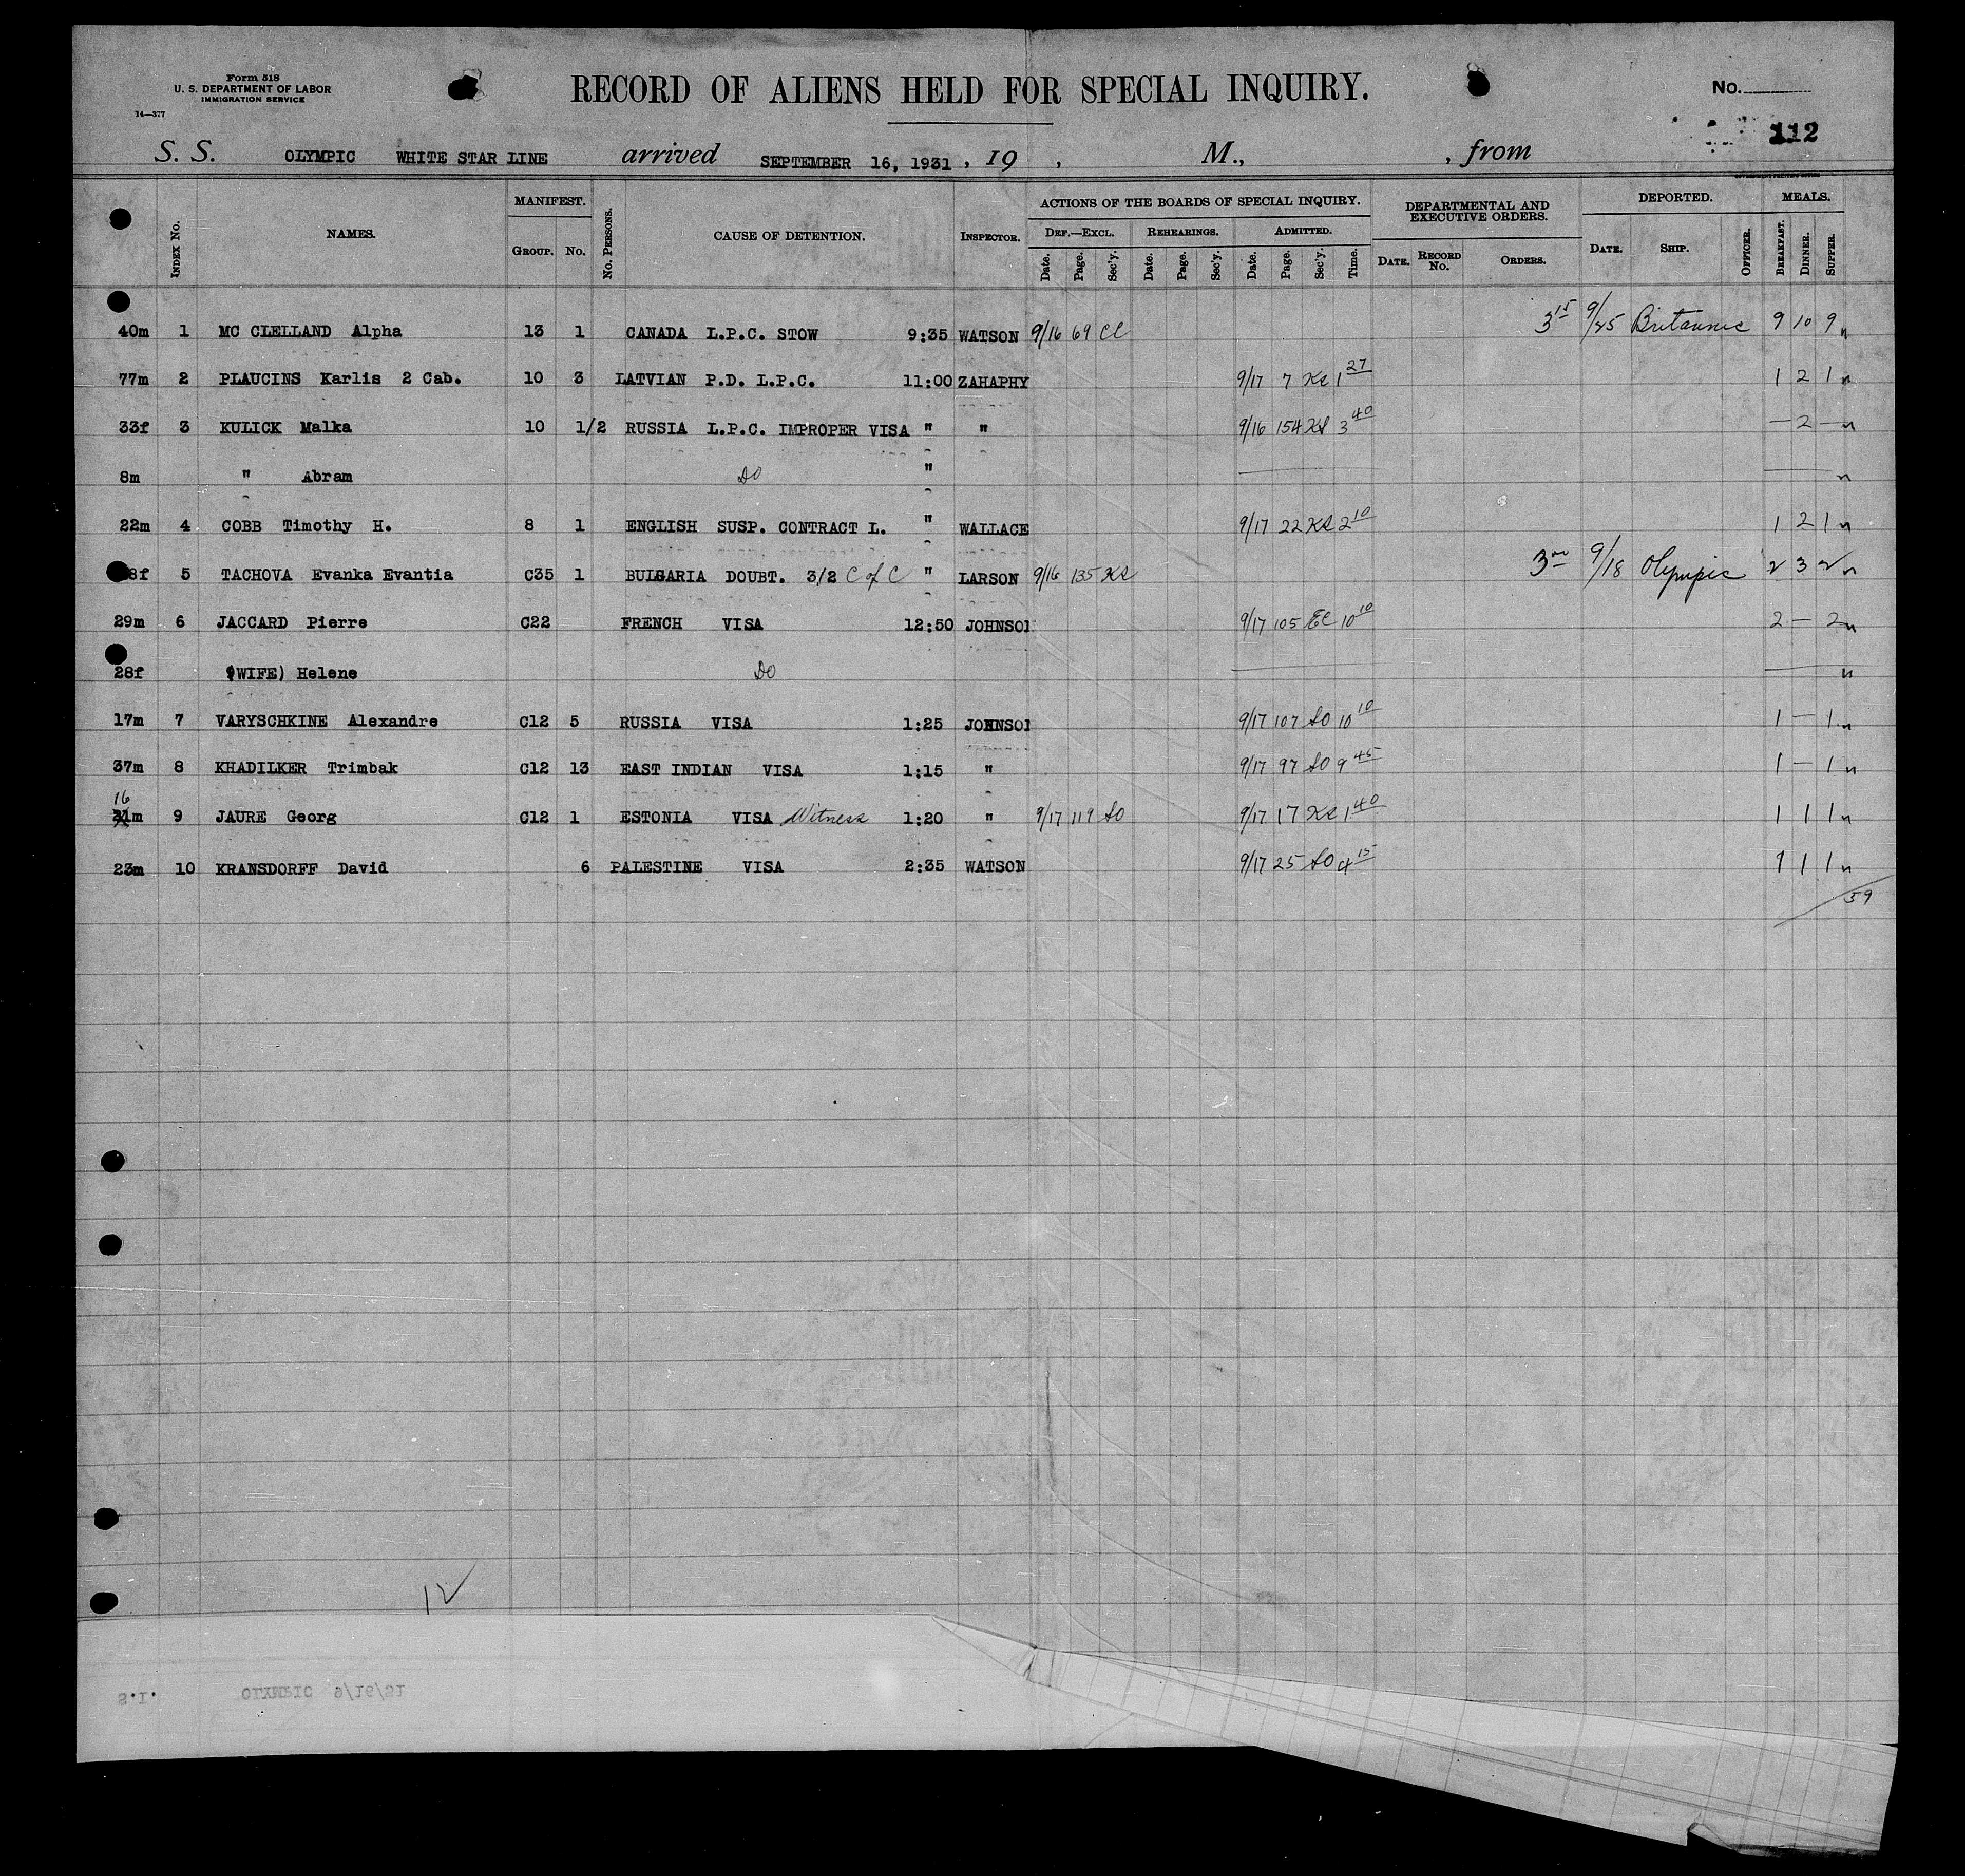 Form 518
U. S. DEPARTMENT OF LABOR
IMMIGRATION SERVICE
14—377
RECORD OF ALIENS HELD FOR SPECIAL INQUIRY.
No.
112
S. S. OLYMPIC WHITE STAR LINE arrived SEPTEMBER 16, 1931 , 19 , M., , from
INDEX No. NAMES. MANIFEST. GROUP. No. No. PERSONS. CAUSE OF DETENTION. INSPECTOR. ACTIONS OF THE BOARDS OF SPECIAL INQUIRY. DEF.—EXCL. Date. Page. Sec'y. REHEARINGS. Date. Page. Sec'y. ADMITTED. Date. Page. Sec'y. Time. DEPARTMENTAL AND EXECUTIVE ORDERS. DATE. RECORD No. ORDERS. DEPORTED. DATE. SHIP. OFFICER. MEALS. BREAKFAST. DINNER. SUPPER.
40m 1 MC CLELLAND Alpha 13 1 CANADA L.P.C. STOW 9:35 WATSON 9/16 69 CC 3 15 9/25 Britannic 9 10 9
77m 2 PLAUCINS Karlis 2 Cab. 10 3 LATVIAN P.D. L.P.C. 11:00 ZAHAPHY 9/17 7 KS 1 27 1 2 1
33f 3 KULICK Malka 10 1/2 RUSSIA L.P.C. IMPROPER VISA " " 9/16 154 KS 3 40 — 2 —
8m " Abram DO "
22m 4 COBB Timothy H. 8 1 ENGLISH SUSP. CONTRACT L. " WALLACE 9/17 22 KS 2 10 1 2 1
8f 5 TACHOVA Evanka Evantia C35 1 BULGARIA DOUBT. 3/2 C of C " LARSON 9/16 135 KS 3 9/18 Olympic 2 3 2
29m 6 JACCARD Pierre C22 FRENCH VISA 12:50 JOHNSON 9/17 105 EC 10 10 2 — 2
28f (WIFE) Helene DO
17m 7 VARYSCHKINE Alexandre C12 5 RUSSIA VISA 1:25 JOHNSON 9/17 107 SO 10 10 1 — 1
37m 8 KHADILKER Trimbak C12 13 EAST INDIAN VISA 1:15 " 9/17 97 SO 9 45 1 — 1
16
31m 9 JAURE Georg C12 1 ESTONIA VISA Witness 1:20 " 9/17 119 SO 9/17 17 KS 1 40 1 1 1
23m 10 KRANSDORFF David 6 PALESTINE VISA 2:35 WATSON 9/17 25 SO 4 15 1 1 1
59
12
S.I. OLYMPIC 9/16/31